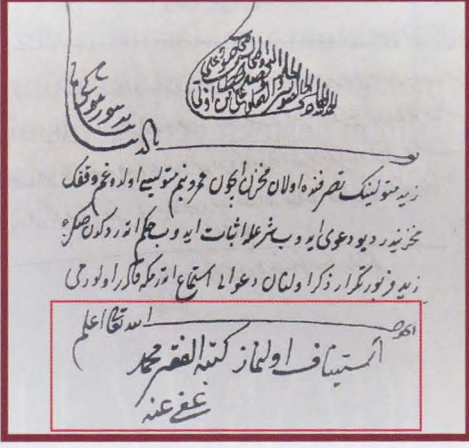 زید متولینك تصرفنده اولان مخزن ایچون عمرو بنم متولیسی اولدوغم وقفك
مخزنیدر دیو دعوی ایدوب شرعله اثبات ایدوب حکم اتدردکدن صکره
زید مزبور تکرار ذکر اولنان دعوایی استماع اتدرمکه قادر اولورمی
الجواب الله تعالی اعلم
استیناف اولنماز کتبه الفقیر محمد
عفی عنه